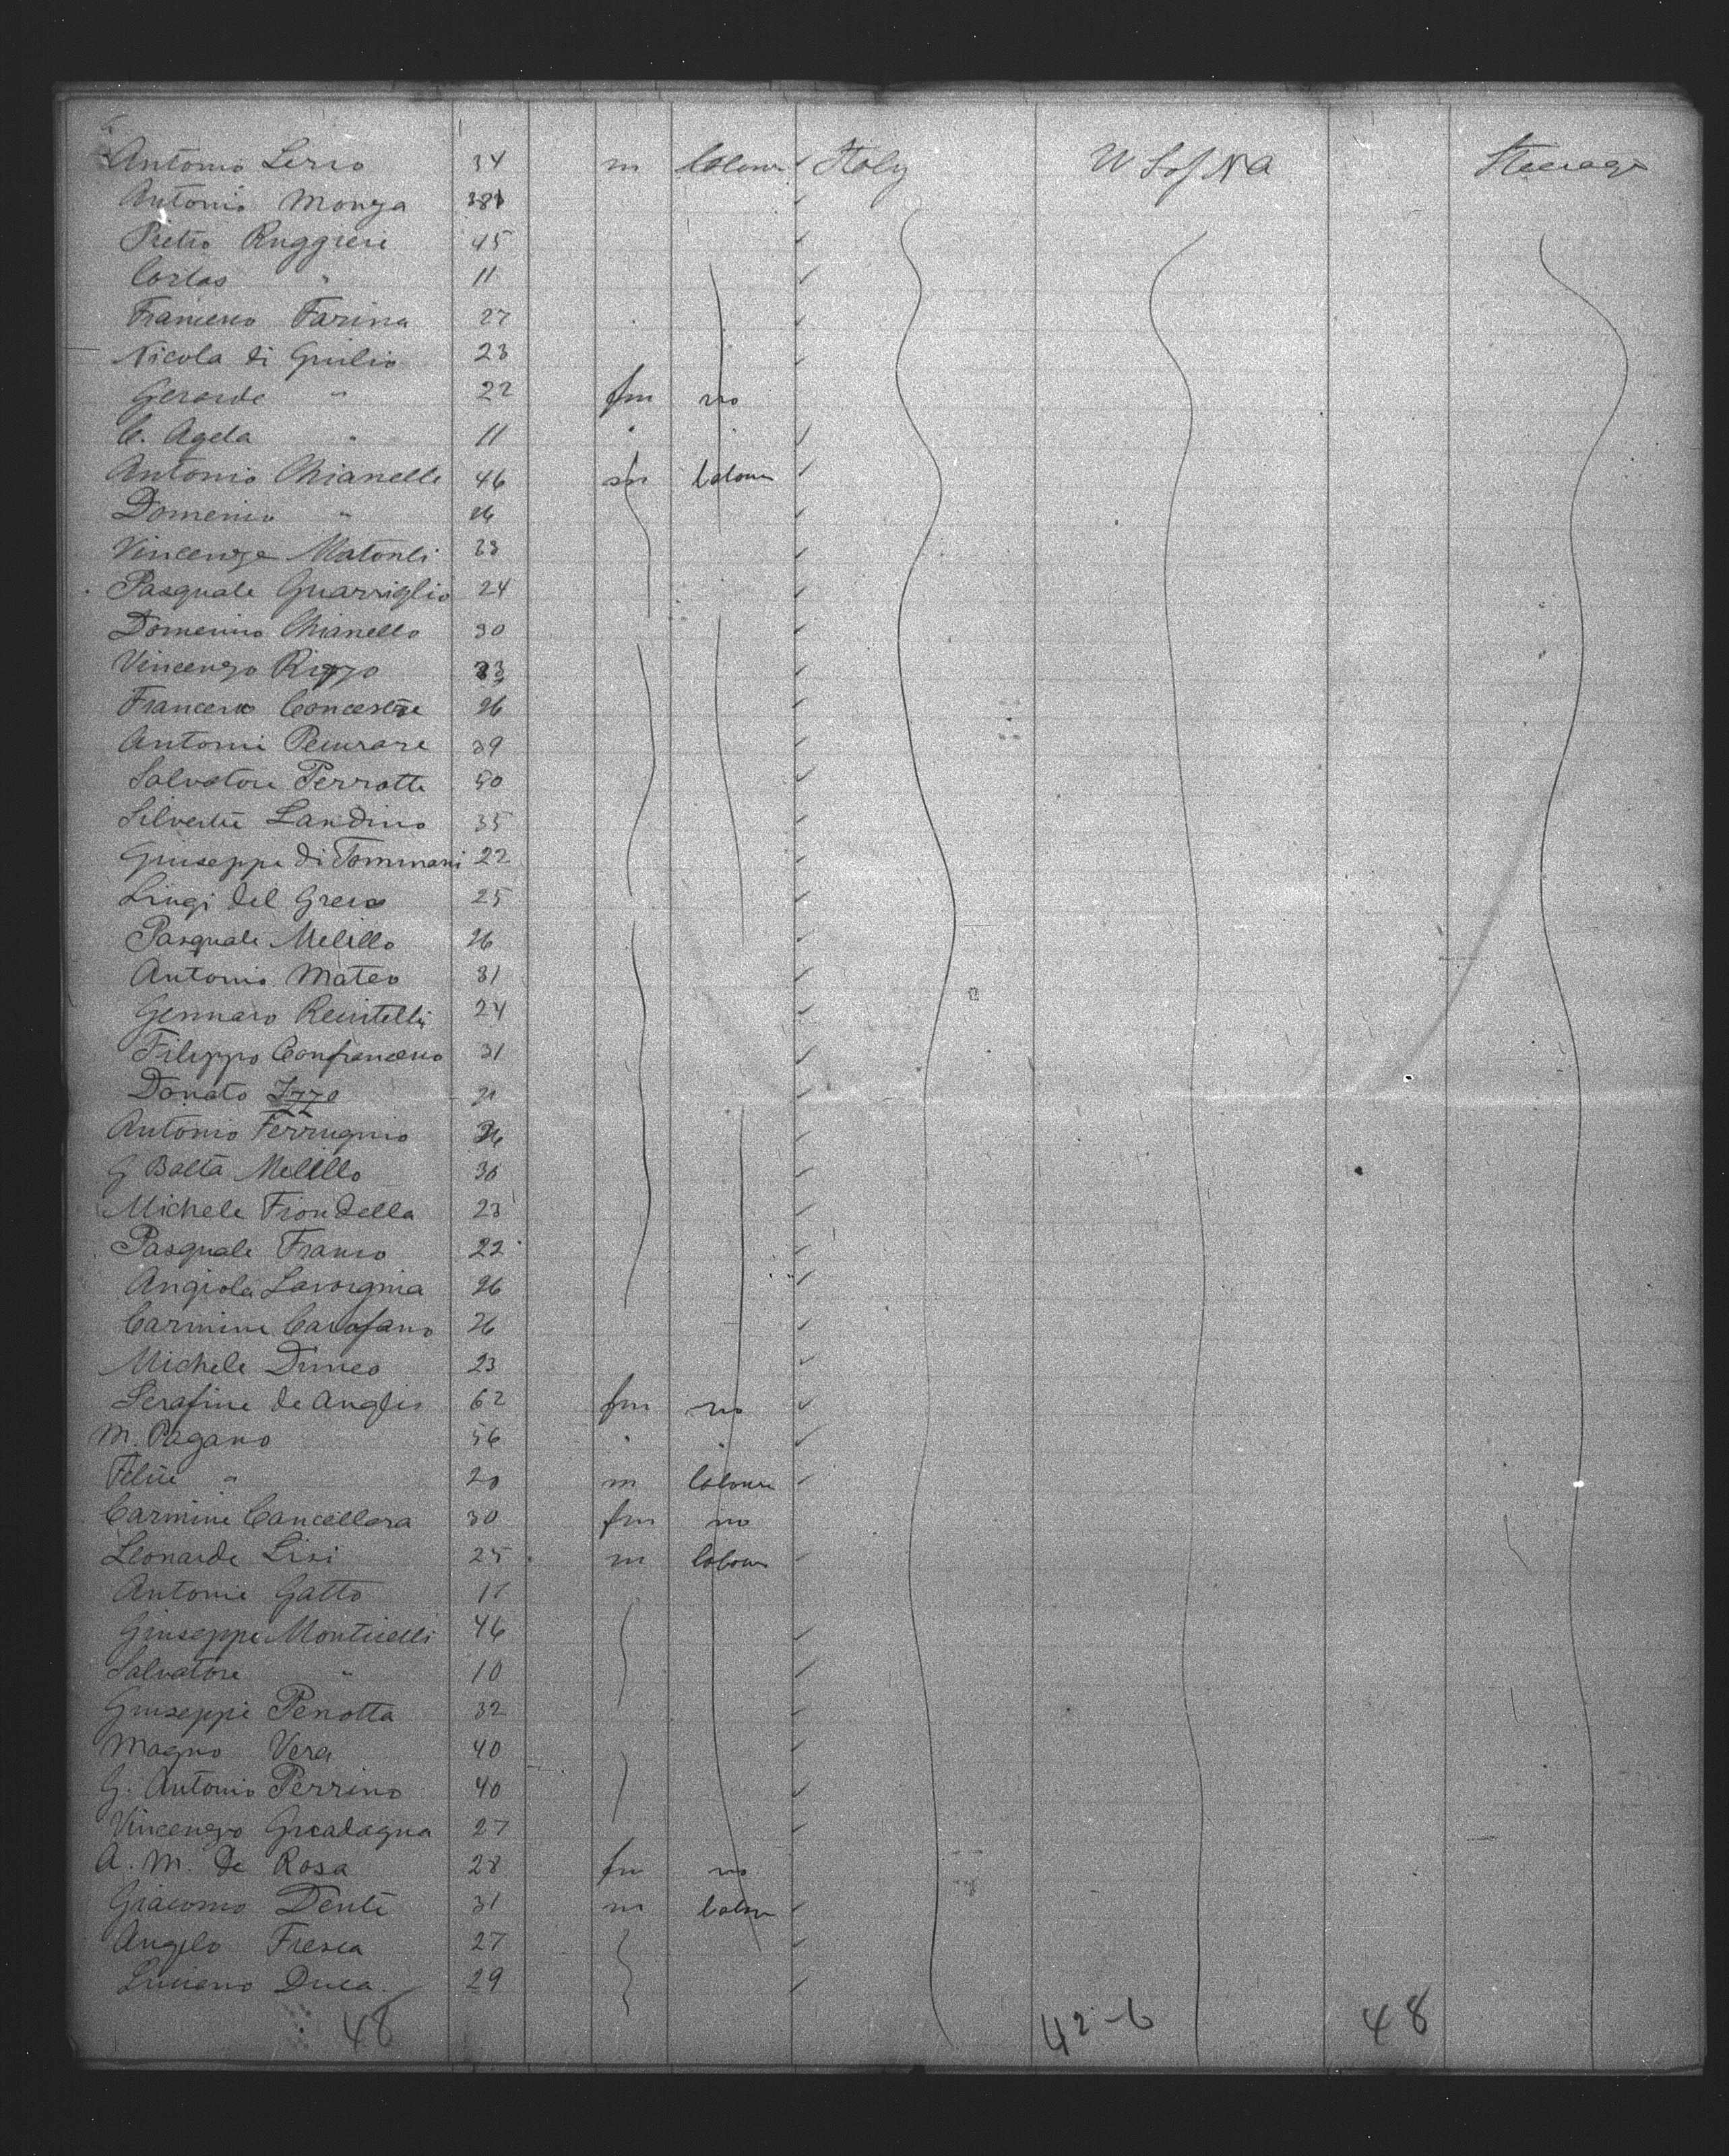 Antonio Lerro 34 m labour Italy U S of N A Steerage
Antonio Monga 38
Pietro Ruggieri 45
Carlas " 11
Francesco Farina 27
Nicola di Giulio 23
Gerarde " 22 fm no
C. Agela " 11 " "
Antonio Chianelle 46 m labour
Domenico " 26
Vincenza Matonti 33
Pasquale Guarriglio 24
Domenico Chianello 30
Vincenzo Rizzo 33
Francesco 26
Antonio Pecurare 39
Salvatore Perrotte 50
Silvestre Landino 35
Giuseppe di Tommasi 22
Luigi del Greco 25
Pasquale Melillo 26
Antonio Mateo 31
Gennaro 24
Filippo Confrancesco 31
Donato Izzo 21
Antonio Ferrugnio 26
G Batta Melillo 36
Michele Frondella 23
Pasquale Franco 22
Angiola Lavorgnia 26
Carmine Carofano 26
Michele Dimeo 23
Serafine de Anglis 62 fm no
M. Pagano 56 " "
Felice " 20 m labour
Carmine Cancellara 30 fm no
Leonarde Lisi 25 m labour
Antonio Gatto 17
Giuseppe Monticelli 46
Salvatore " 10
Giuseppe Perrotta 32
Magno Vera 40
G. Antonio Perrino 40
Vincenzo Guadagna 27
A. M. de Rosa 28 fm no
Giacomo Dente 31 m labour
Angelo Fresca 27
Luciano Duca 29
48 42-6 48